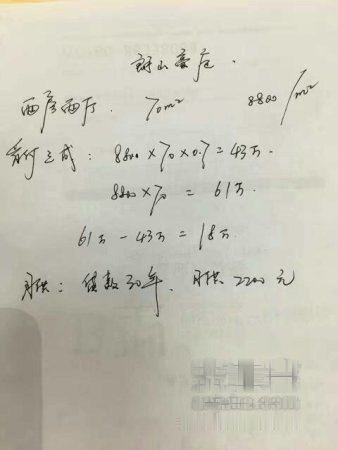 山豪庭.
两房两厅. 70m² 8800/m²
首付三成: 8800×70×0.7=43万.
8800×70 = 61万.
61万-43万=18万.
月供: 贷款30年. 月供 2200元